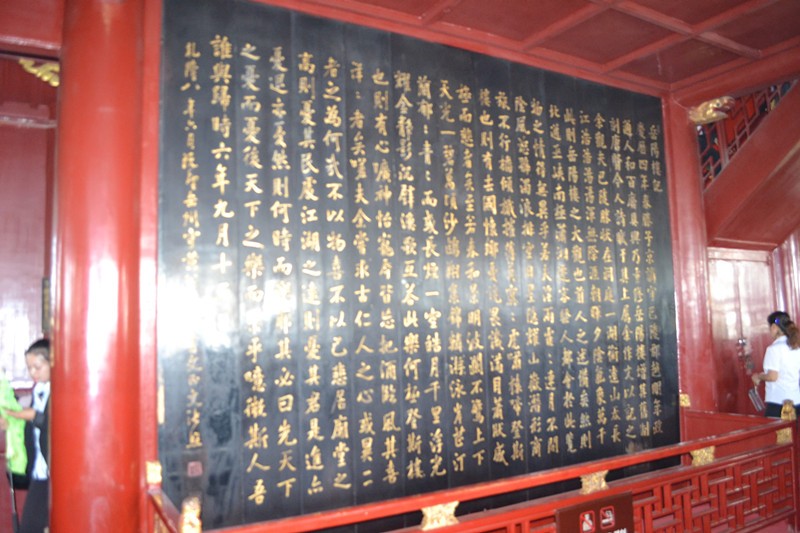 岳陽樓記
慶曆四年春滕子京謫守巴陵郡越明年政
通人和百廢具興乃重修岳陽樓增其舊制
刻唐賢今人詩賦于其上屬余作文以記之
余觀夫巴陵勝狀在洞庭一湖銜遠山吞長
江浩浩湯湯橫無際涯朝暉夕陰氣象萬千
此則岳陽樓之大觀也前人之述備矣然則
北通巫峽南極瀟湘遷客騷人多會於此覽
物之情得無異乎若夫霪雨霏：連月不開
陰風怒號濁浪排空日星隱耀山嶽潛形商
旅不行檣傾楫摧薄暮冥：虎嘯猿啼登斯
樓也則有去國懷鄉憂讒畏譏滿目蕭然感
極而悲者矣至若春和景明波瀾不驚上下
天光一碧萬頃沙鷗翔集錦鱗游泳岸芷汀
蘭郁：青：而或長煙一空皓月千里浮光
耀金靜影沉璧漁歌互答此樂何極登斯樓
也則有心曠神怡寵辱皆忘把酒臨風其喜
洋：者矣嗟夫余嘗求古仁人之心或異二
者之為何哉不以物喜不以己悲居廟堂之
高則憂其民處江湖之遠則憂其君是進亦
憂退亦憂然則何時而樂耶其必曰先天下
之憂而憂後天下之樂而樂乎噫微斯人吾
誰與歸時六年九月十
乾隆八年六月